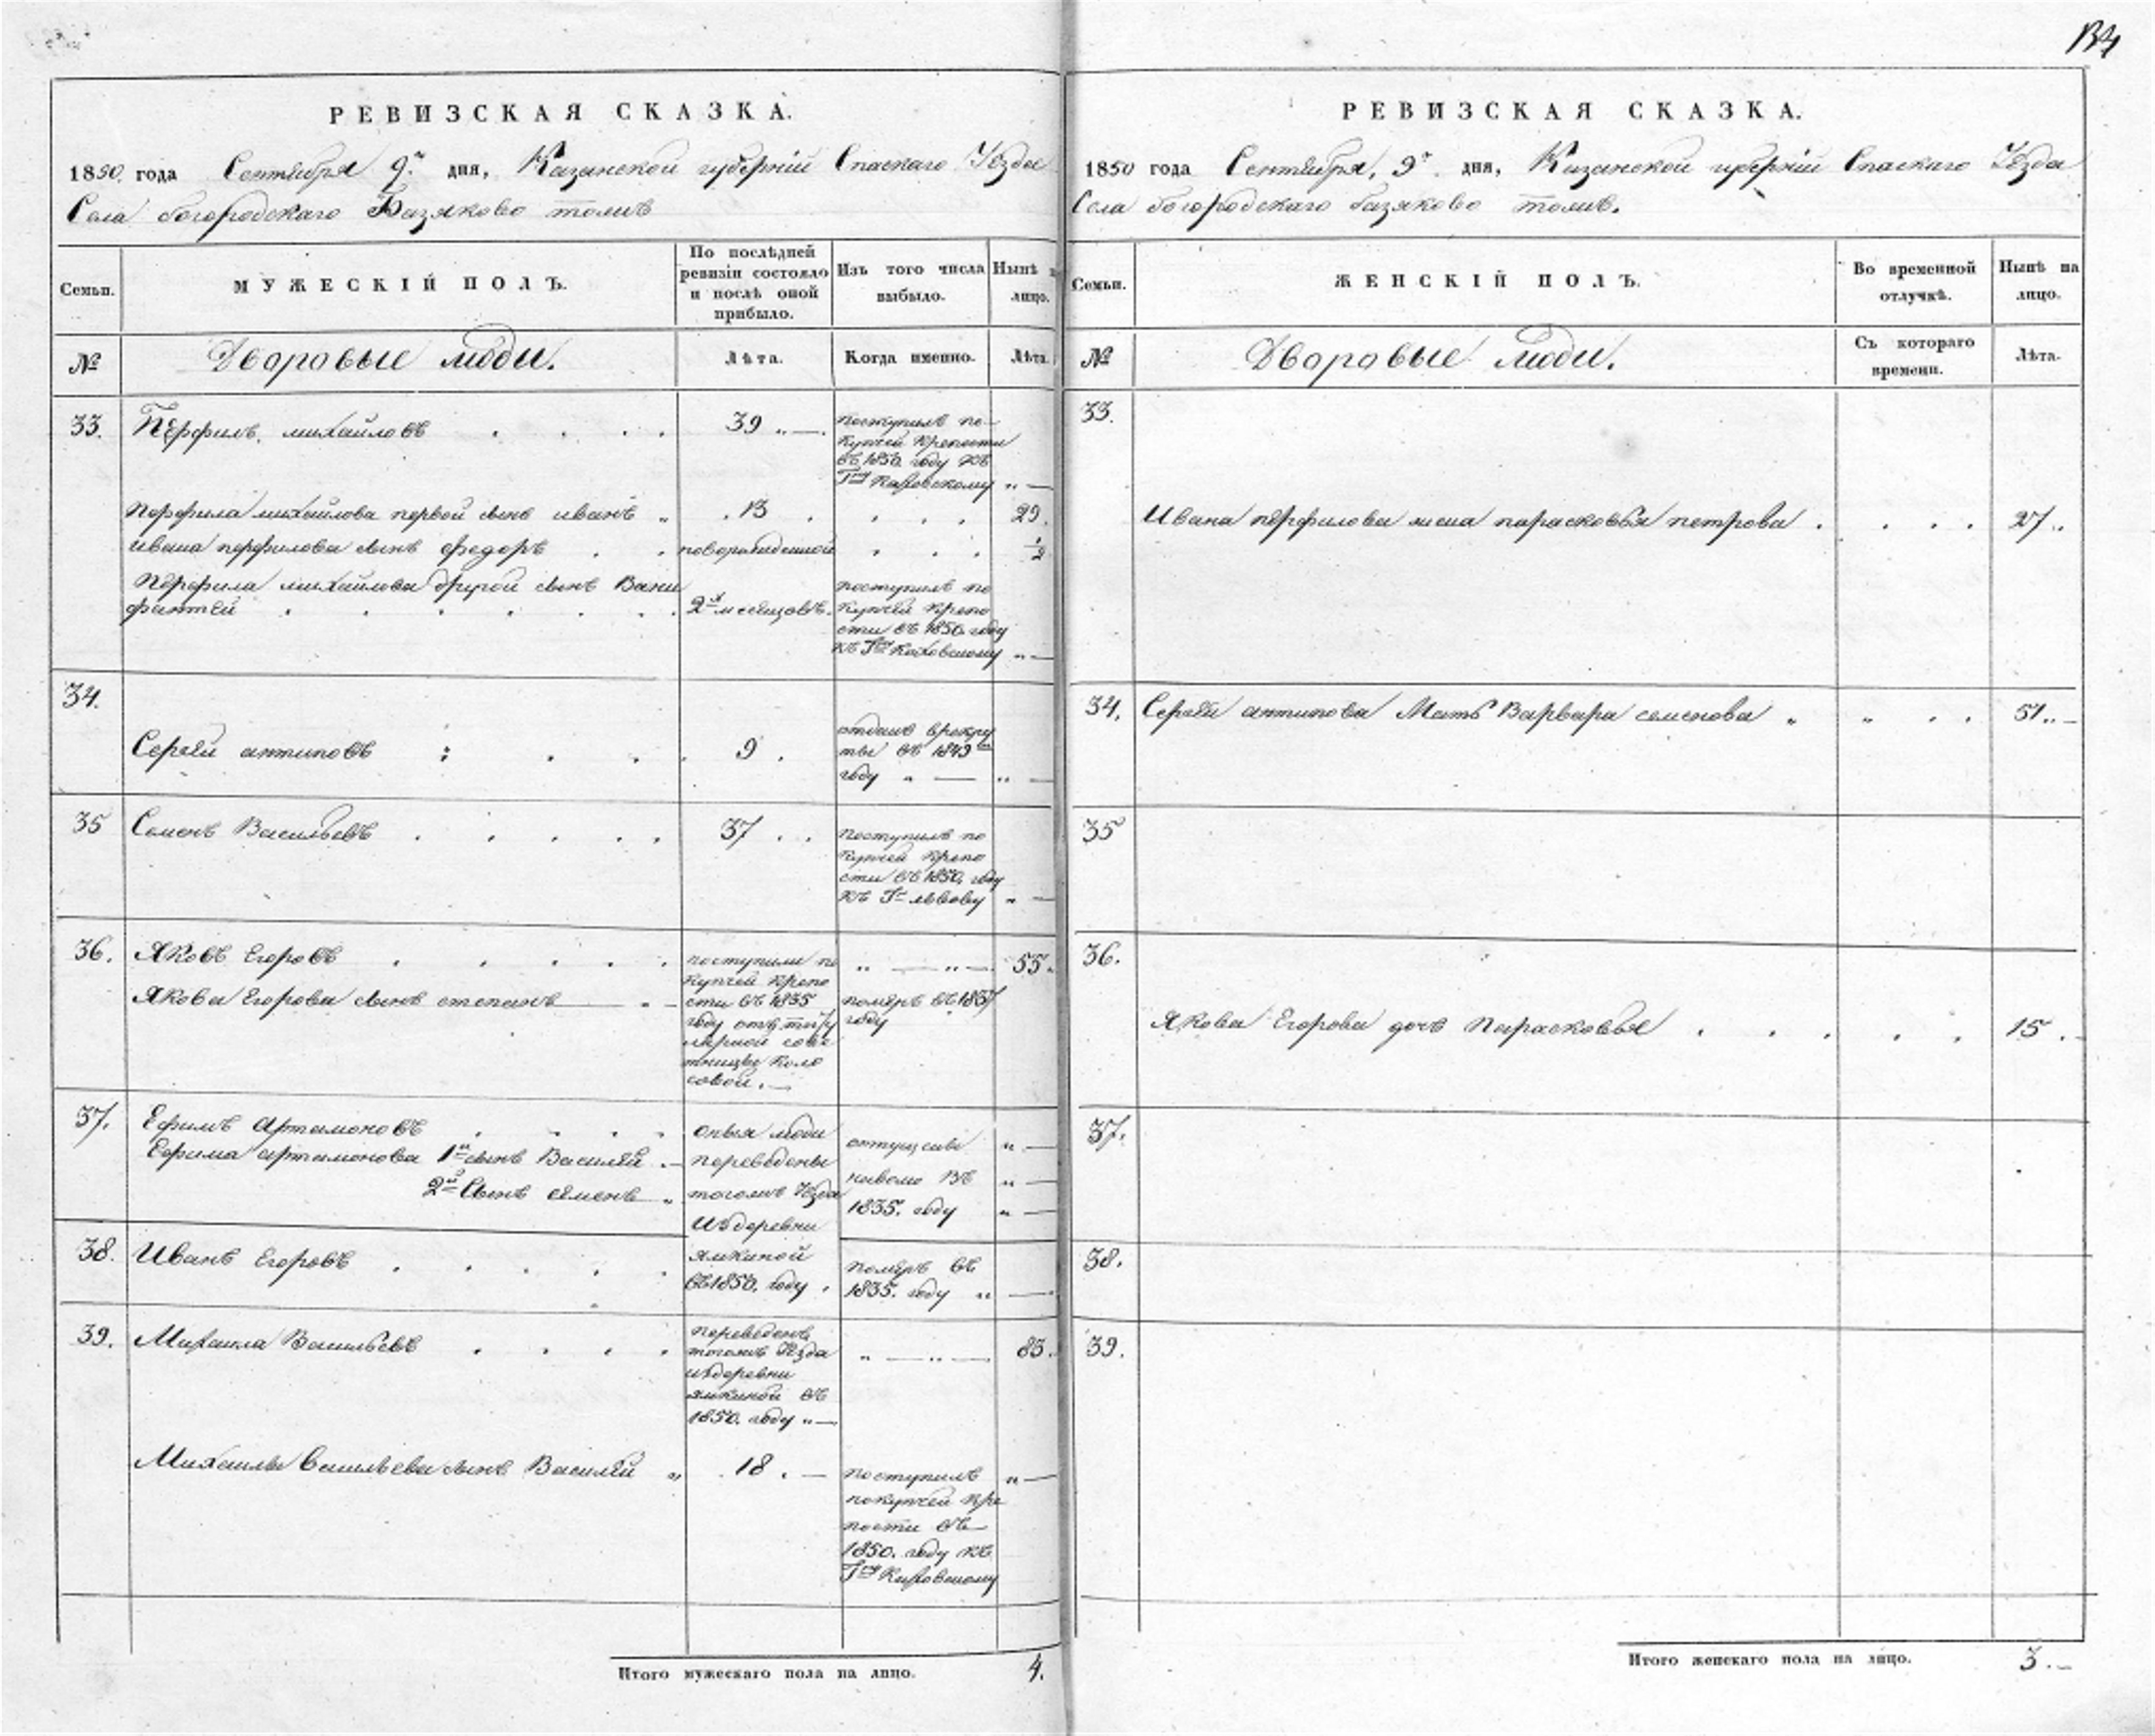 134
РЕВИЗСКАЯ СКАЗКА.
1850 года Сентября 9го дня, Казанской губернiи Спаскаго Уѣзда
Села богородскаго Базяково тожив
СемьиN.
МУЖЕСКІЙ ПОЛЪ.
По послѣдней
ревизіи состояло
и послѣ оной
прибыло.
Изъ того числа
выбыло.
Нынѣ
лицо.
№
Дворовые люди.
Лѣта.
Когда именно.
Лѣта.
33.
Перфилъ михайловъ
39
поступилъ по
купчей крепости
въ 1850 году къ
Гну Каховскому
Перфила михайлова первой сынъ иванъ
13
29.
ивана перфилова сынъ федоръ
новорожденной
1/2
Перфила михайлова другой сынъ Вани
фантей
2х месяцовъ
поступилъ по
купчей крепо
сти въ 1850 году
къ Гну Каховскому
34.
Сергей антиповъ
9
отданъ врекру
ты въ 1849м
году
35
Семенъ Васильевъ
37
Поступилъ по
купчей крепо
сти въ 1850 году
къ Гну львову
36.
Яковъ Егоровъ
поступили по
купчей крепо
сти въ 1835
году отъ титу
лярной сове
тницы Коло
совой.
55.
Якова Егорова сынъ степанъ
помѣръ въ 1837
году
37.
Ефимъ Артамоновъ
Ефима артамонова 1й сынъ Василей
2й Сынъ семенъ
оныя люди
переведены
тогожъ Уѣзда
изъ деревни
ямкиной
въ 1850. году
отпущены
наволю Въ
1835. году
38.
Иванъ Егоровъ
помѣръ въ
1835. году
39.
Михаила Васильевъ
переведенъ
тогожъ Уѣзда
изъ деревни
ямкиной въ
1850. году
83.
Михаилы васильева сынъ Василей
18.
поступилъ
по купчей кре
пости въ
1850. году къ
Гну Каховскому
Итого мужескаго пола на лицо.
4.
РЕВИЗСКАЯ СКАЗКА.
1850 года Сентября, 9го дня, Казанской губернiи Спаскаго Уѣзда
Села богородскаго базяково тожив.
Семьи.
ЖЕНСКІЙ ПОЛЪ.
Во временной
отлучкѣ.
Нынѣ на
лицо.
№
Дворовые люди.
Съ котораго
времени.
Лѣта.
33.
Ивана перфилова жена парасковья петрова
27
34.
Сергея антипова Мать Варвара семенова
51
35
36.
Якова Егорова дочь Парасковья
15
37.
38.
39.
Итого женскаго пола на лицо.
3.